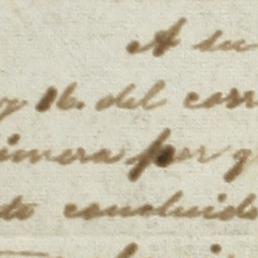 A su
y 16. del corr
imera por q
to concluido